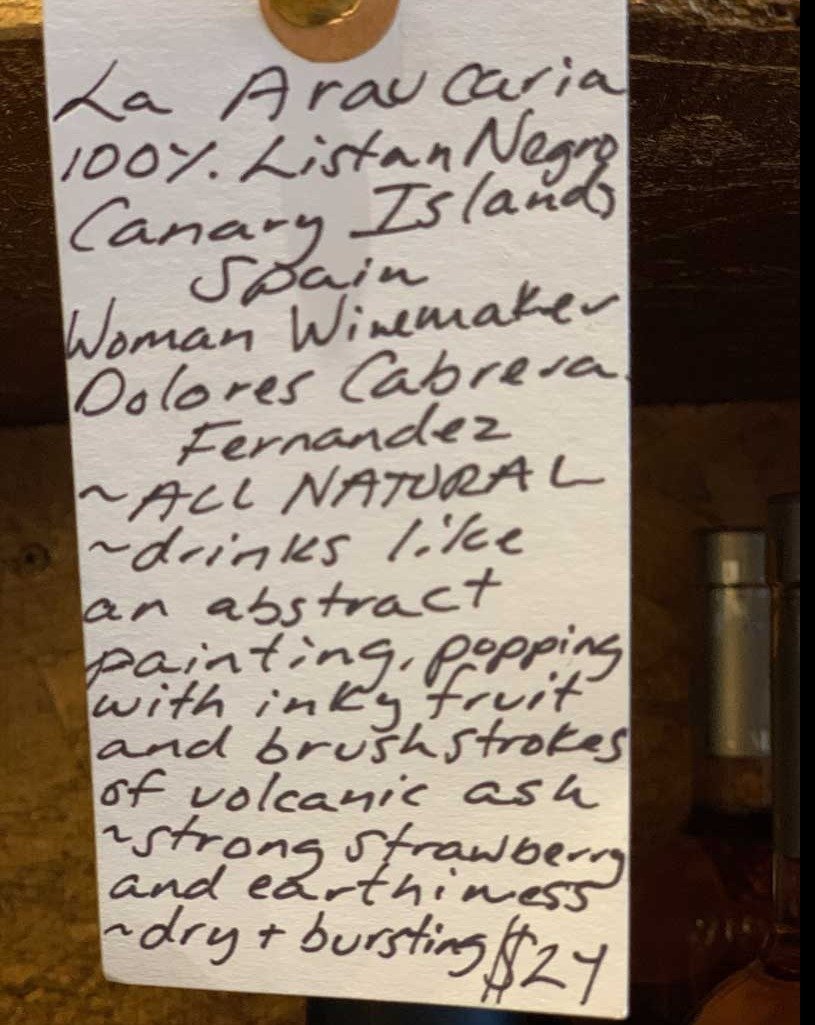 La Araucaria
100% Listan Negro
Canary Islands
Spain
Woman Winemaker
Dolores Cabrera
Fernandez
~ALL NATURAL
~drinks like
an abstract
painting, popping
with inky fruit
and brushstrokes
of volcanic ash
~strong strawberry
and earthiness
~dry + bursting $24